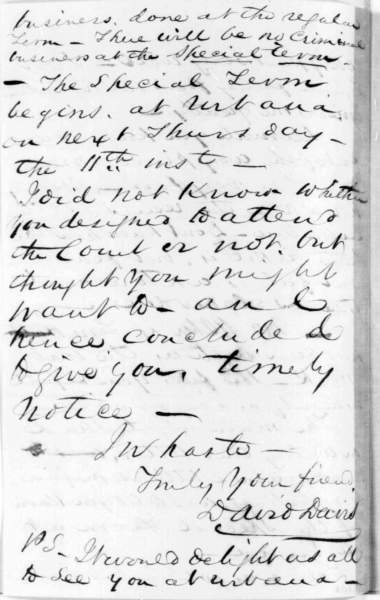 business, done at the regular
Term — There will be no Criminal
business at the Special Term.
— The Special Term
begins, at Urbana
on next Thursday —
the 11th inst —
I did not Know whether
you designed to attend
the Court or not, but
thought you might
want to — and
hence concluded
to give you, timely
notice —
In haste —
Truly Your friend
David Davis
PS — It would delight us all
to see you at Urbana —